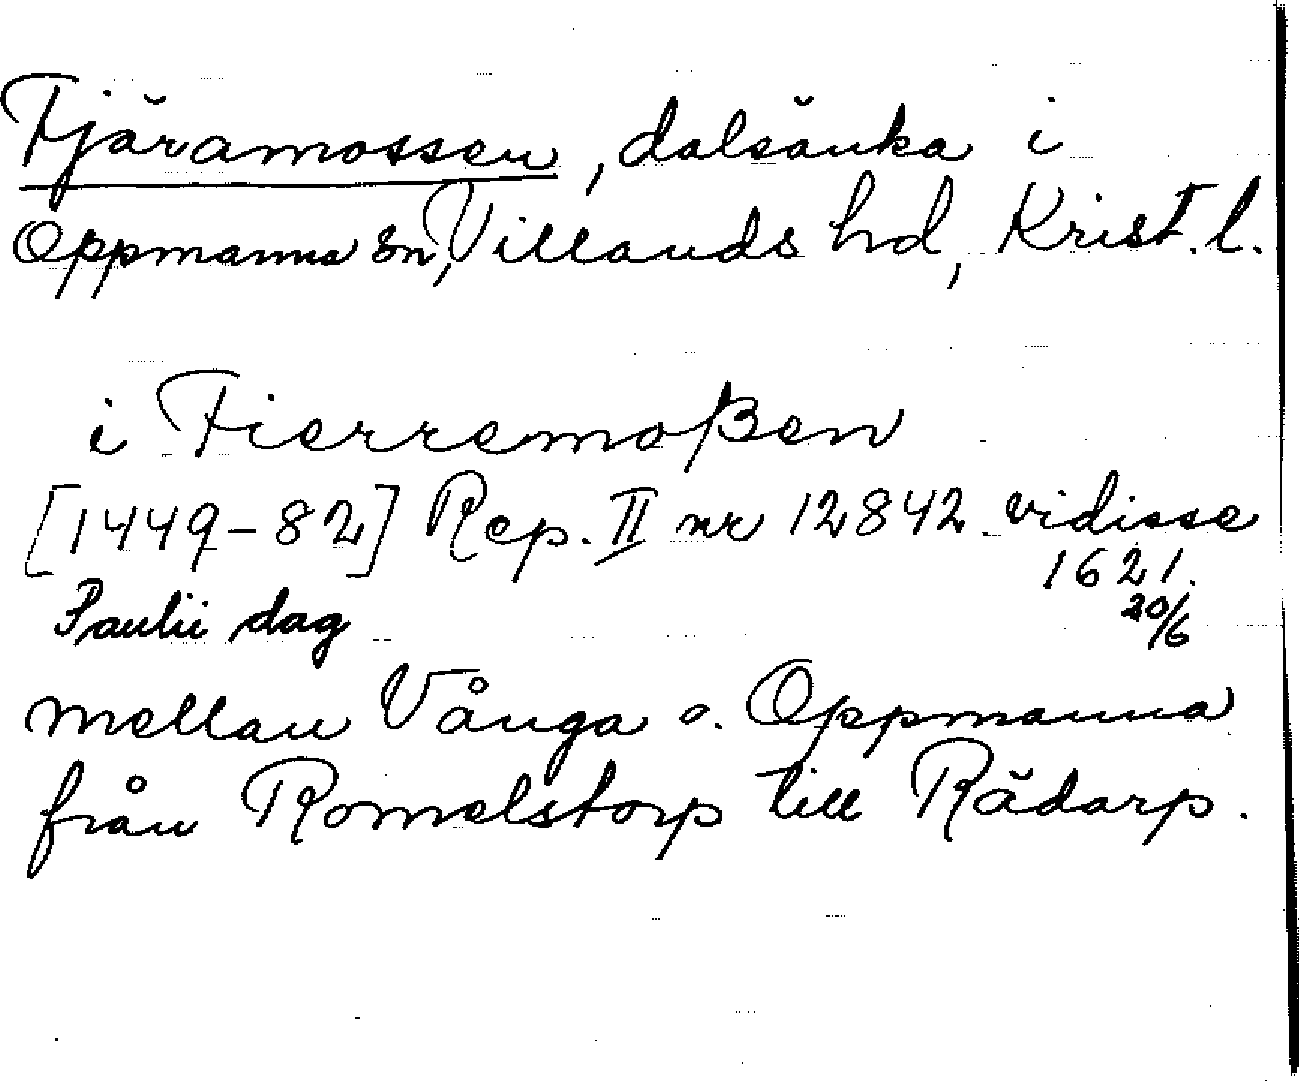 Tjäramossen, dalsänka i
Oppmanna sn, Villands hd, Krist. l.
i Tierremoßen
[1449-82] Rep. II nr 12842 vidisse
1621.
20/6
Paulii dag
mellan Vånga o. Oppmanna
från Romelstorp till Rådarp.